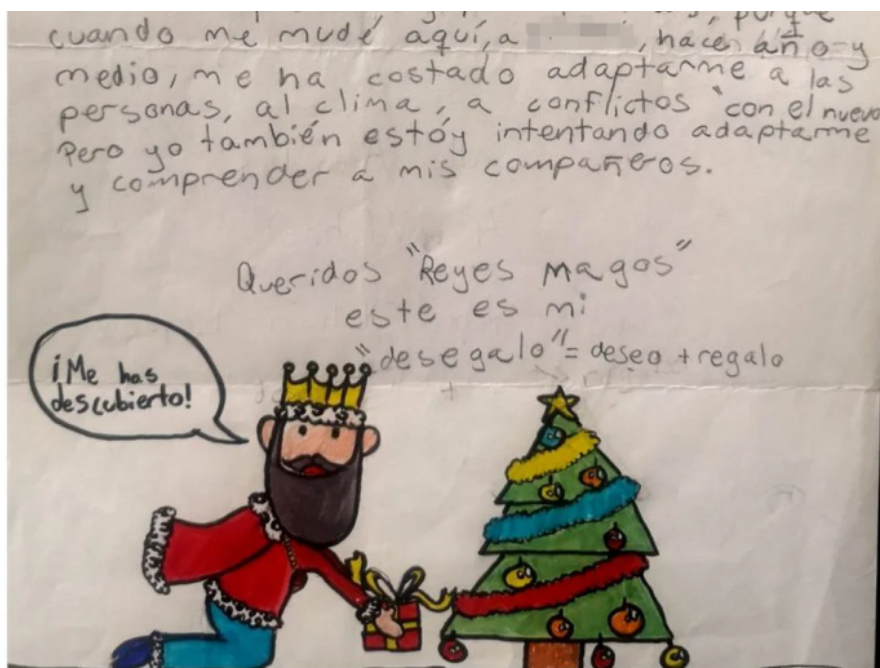 porque
cuando me mudé aquí, a , hace año y
medio, me ha costado adaptarme a las
personas, al clima, a conflictos "con el nuevo
Pero yo también estóy intentando adaptarme
y comprender a mis compañeros.
Queridos "Reyes magos"
este es mi
"desegalo" = deseo + regalo
¡Me has
descubierto!